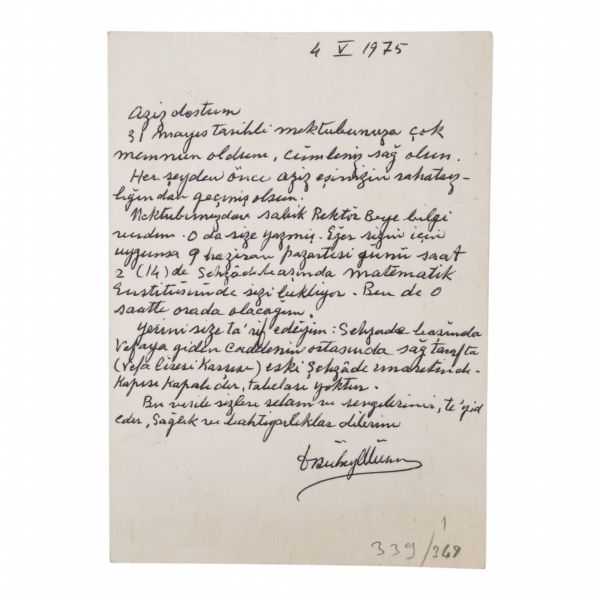 4 V 1975
Aziz dostum
31 mayıs tarihli mektubunuza çok
memnun oldum, cümleniz sağ olsun.
Her şeyden önce aziz eşinizin rahatsız-
lığından geçmiş olsun.
Mektubunuzdan sabık Rektör Beye bilgi
verdim. O da size yazmış. Eğer sizin için
uygunsa 9 haziran pazartesi günü saat
2 (14) de Şehzâdebaşında matematik
Enstitüsünde sizi bekliyor. Ben de o
saatte orada olacağım.
Yerini size ta'rif edeyim: Şehzade başında
Vefaya giden Caddenin ortasında sağ tarafta
(Vefa lisesi Karşısı) eski Şehzâde imaretinde.
Kapısı Kapalıdır, tabelası yoktur.
Bu vesile sizlere selam ve sevgilerimi, te'yid
eder, Sağlık ve bahtiyarlıklar dilerim
339/349
1